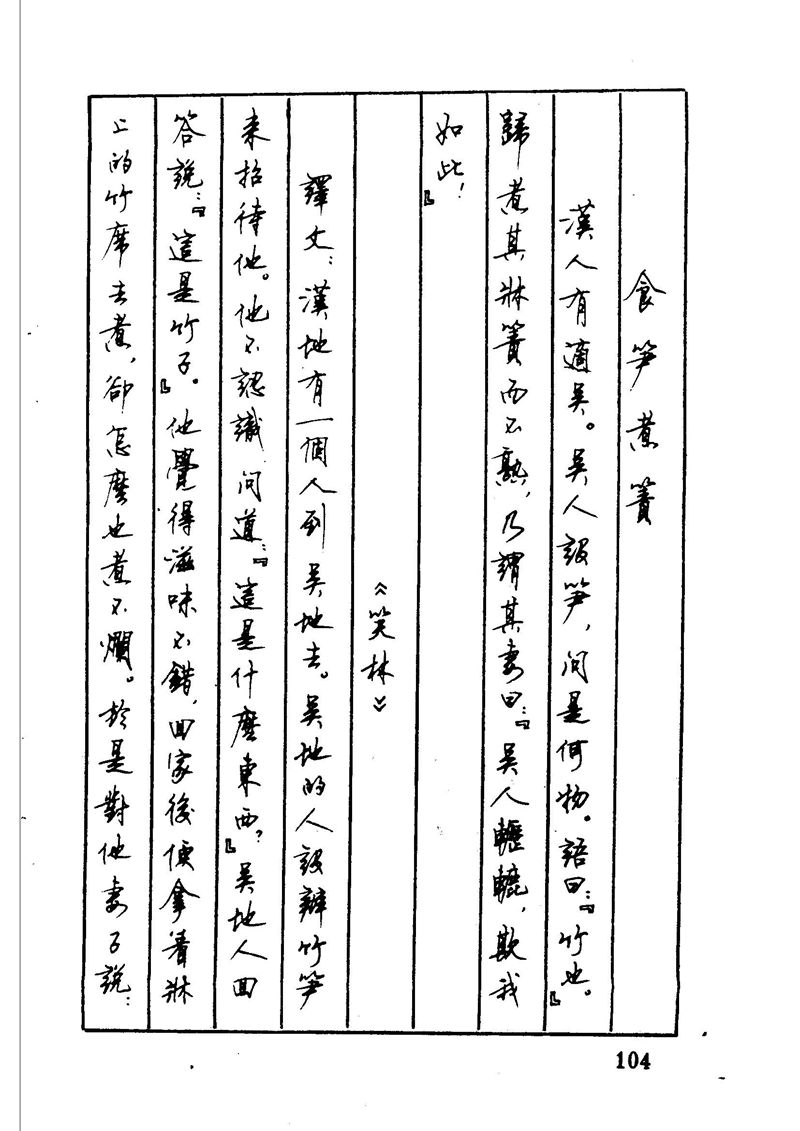 食笋煮簀
漢人有適吳。吳人設笋，問是何物。語曰：『竹也。』
歸煮其牀簀而不熟，乃謂其妻曰：『吳人轣轆，欺我
如此！』
《笑林》
譯文：漢地有一個人到吳地去。吳地的人設辦竹笋
來招待他。他不認識，問道：『這是什麼東西？』吳地人回
答說：『這是竹子。』他覺得滋味不錯，回家後便拿着牀
上的竹席去煮，卻怎麼也煮不爛。於是對他妻子說：
104